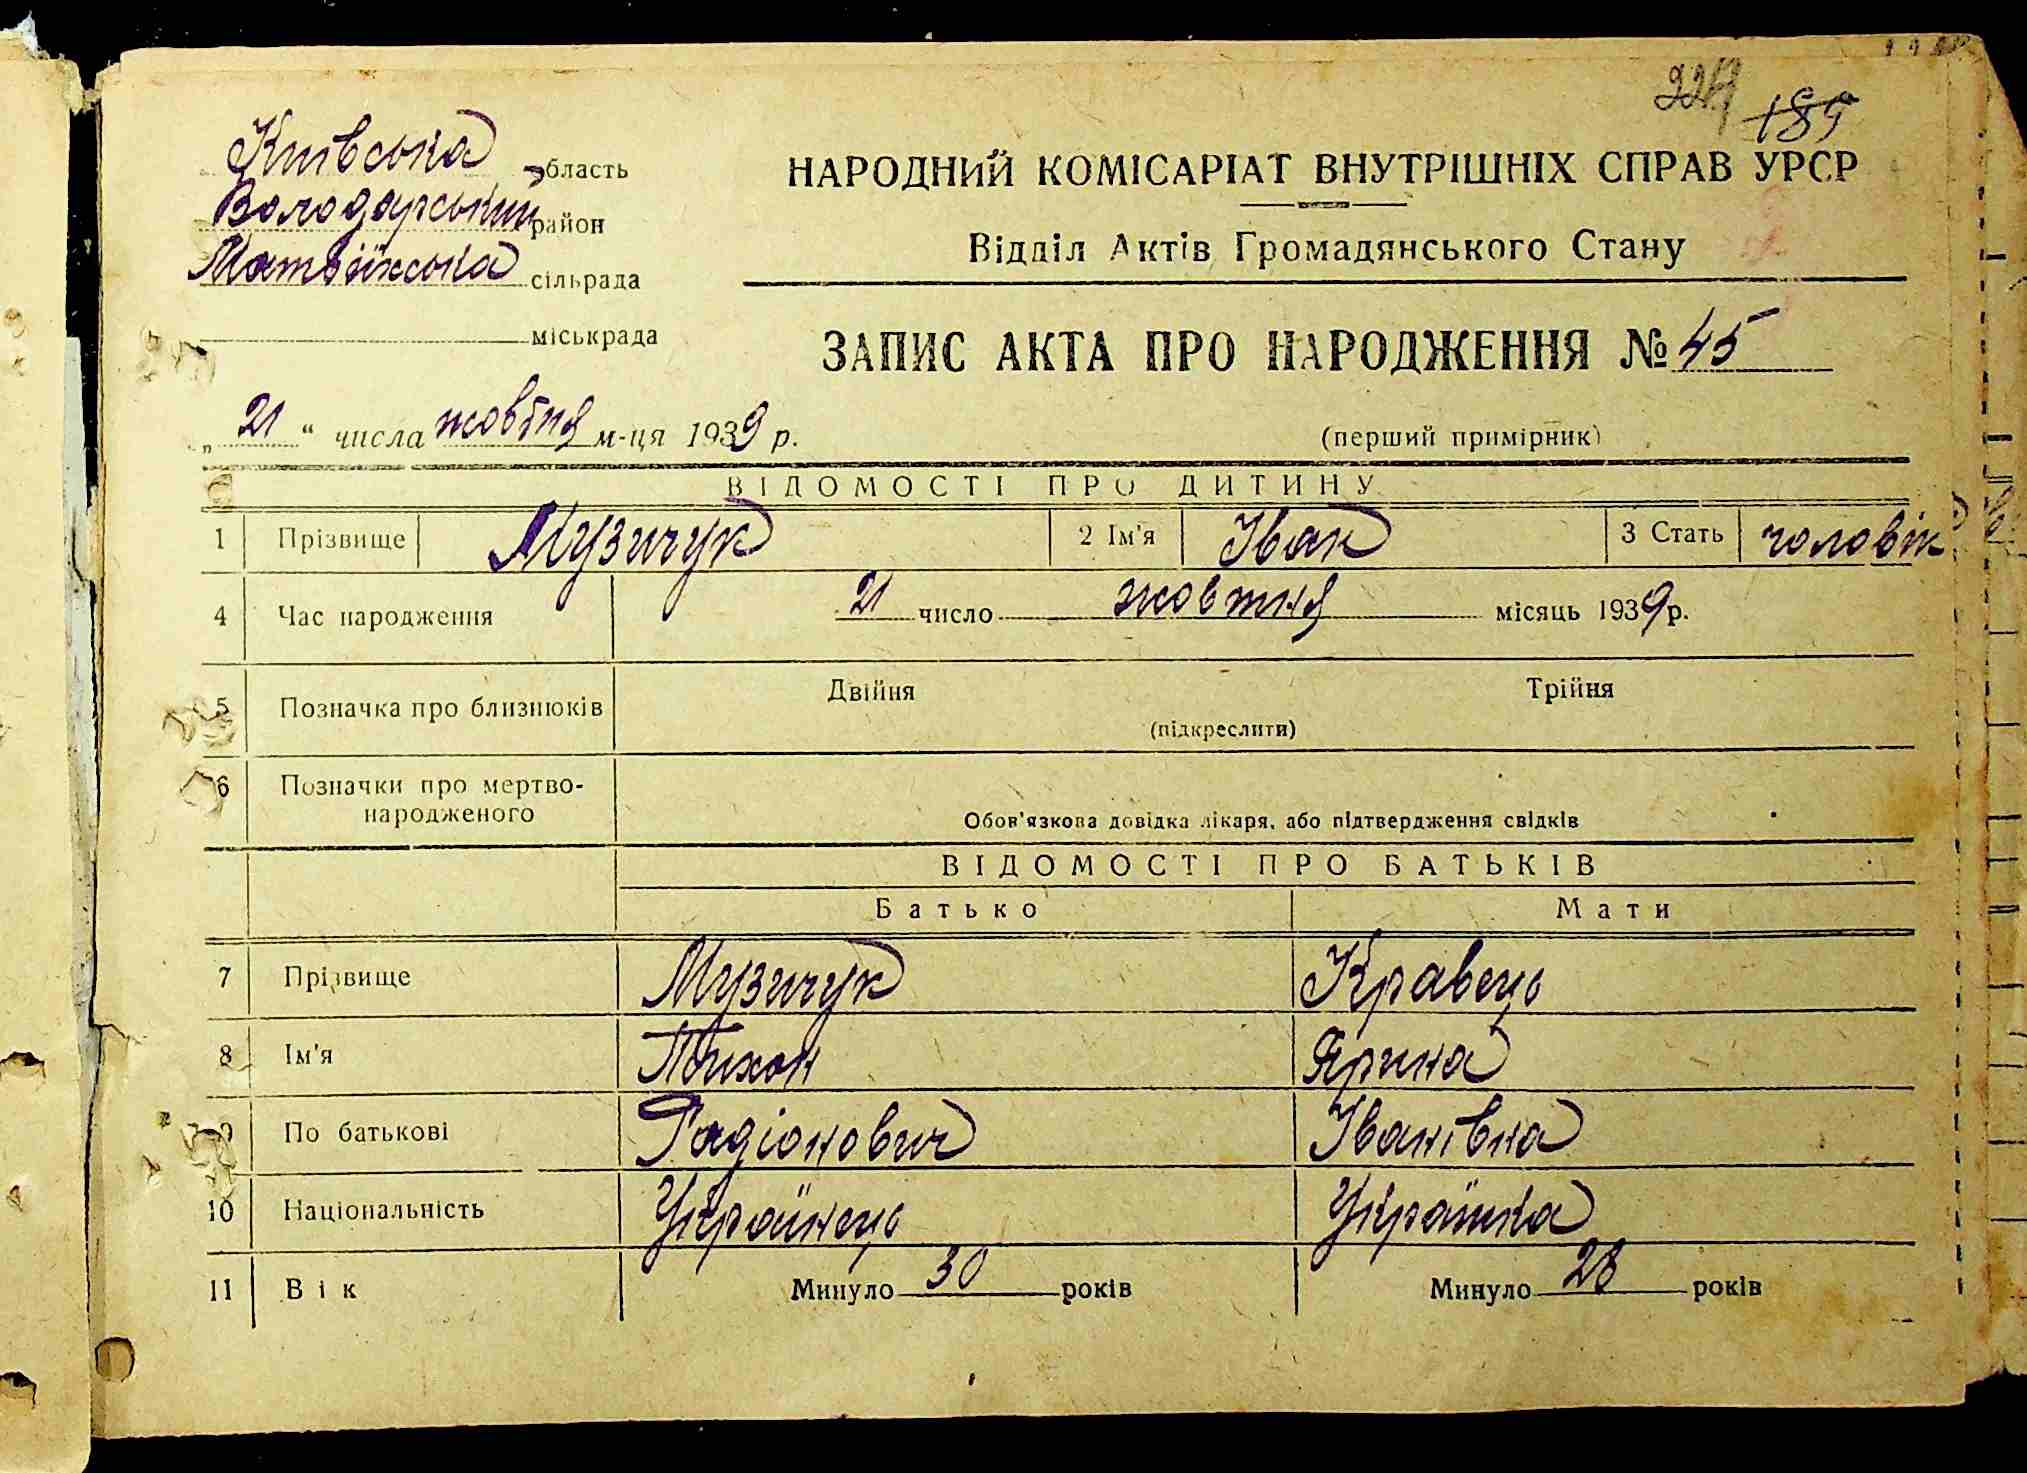 185
Київська область
НАРОДНИЙ КОМІСАРІАТ ВНУТРІШНІХ СПРАВ УРСР
Володарський район
Відділ Актів Громадянського Стану
Матвіїхська сільрада
міськрада
ЗАПИС АКТА ПРО НАРОДЖЕННЯ № 45
„21“ числа жовтня м-ця 1939 р.
(перший примірник)
ВІДОМОСТІ ПРО ДИТИНУ
1 Прізвище Музичук 2 Ім'я Іван 3 Стать чоловік
4 Час народження 21 число жовтня місяць 1939 р.
5 Позначка про близнюків Двійня Трійня
(підкреслити)
6 Позначки про мертво-
народженого
Обов'язкова довідка лікаря, або підтвердження свідків
ВІДОМОСТІ ПРО БАТЬКІВ
Батько Мати
7 Прізвище Музичук Кравець
8 Ім'я Тихон Ярина
9 По батькові Радіонович Іванівна
10 Національність Українець Українка
11 Вік Минуло 30 років Минуло 28 років